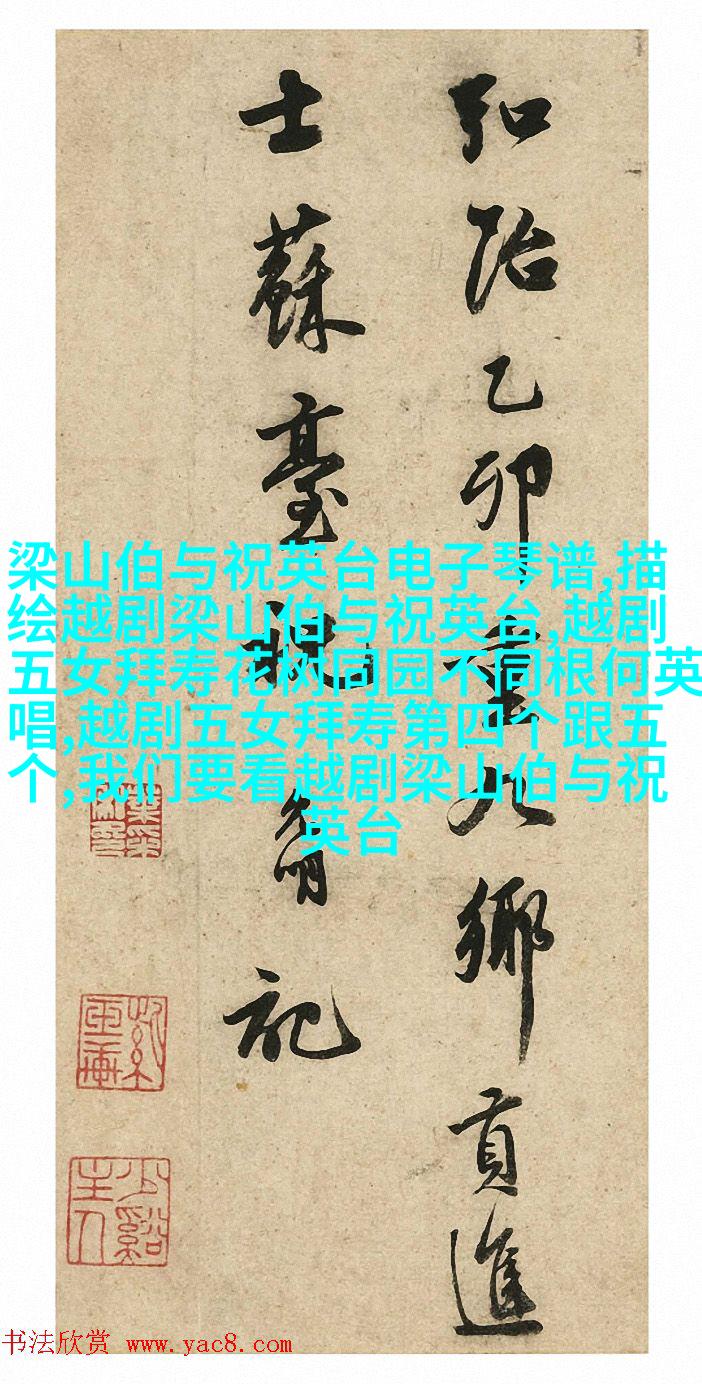 弘治乙卯重九鄉貢進
士蘇臺祝允明記
梁山伯与祝英台电子琴谱,描
绘越剧梁山伯与祝英台,越剧
五女拜寿花树同园不同根何英
唱,越剧五女拜寿第四个跟五
个,我们要看越剧梁山伯与祝
英台
少谿主人
书法欣赏 www.yac8.com